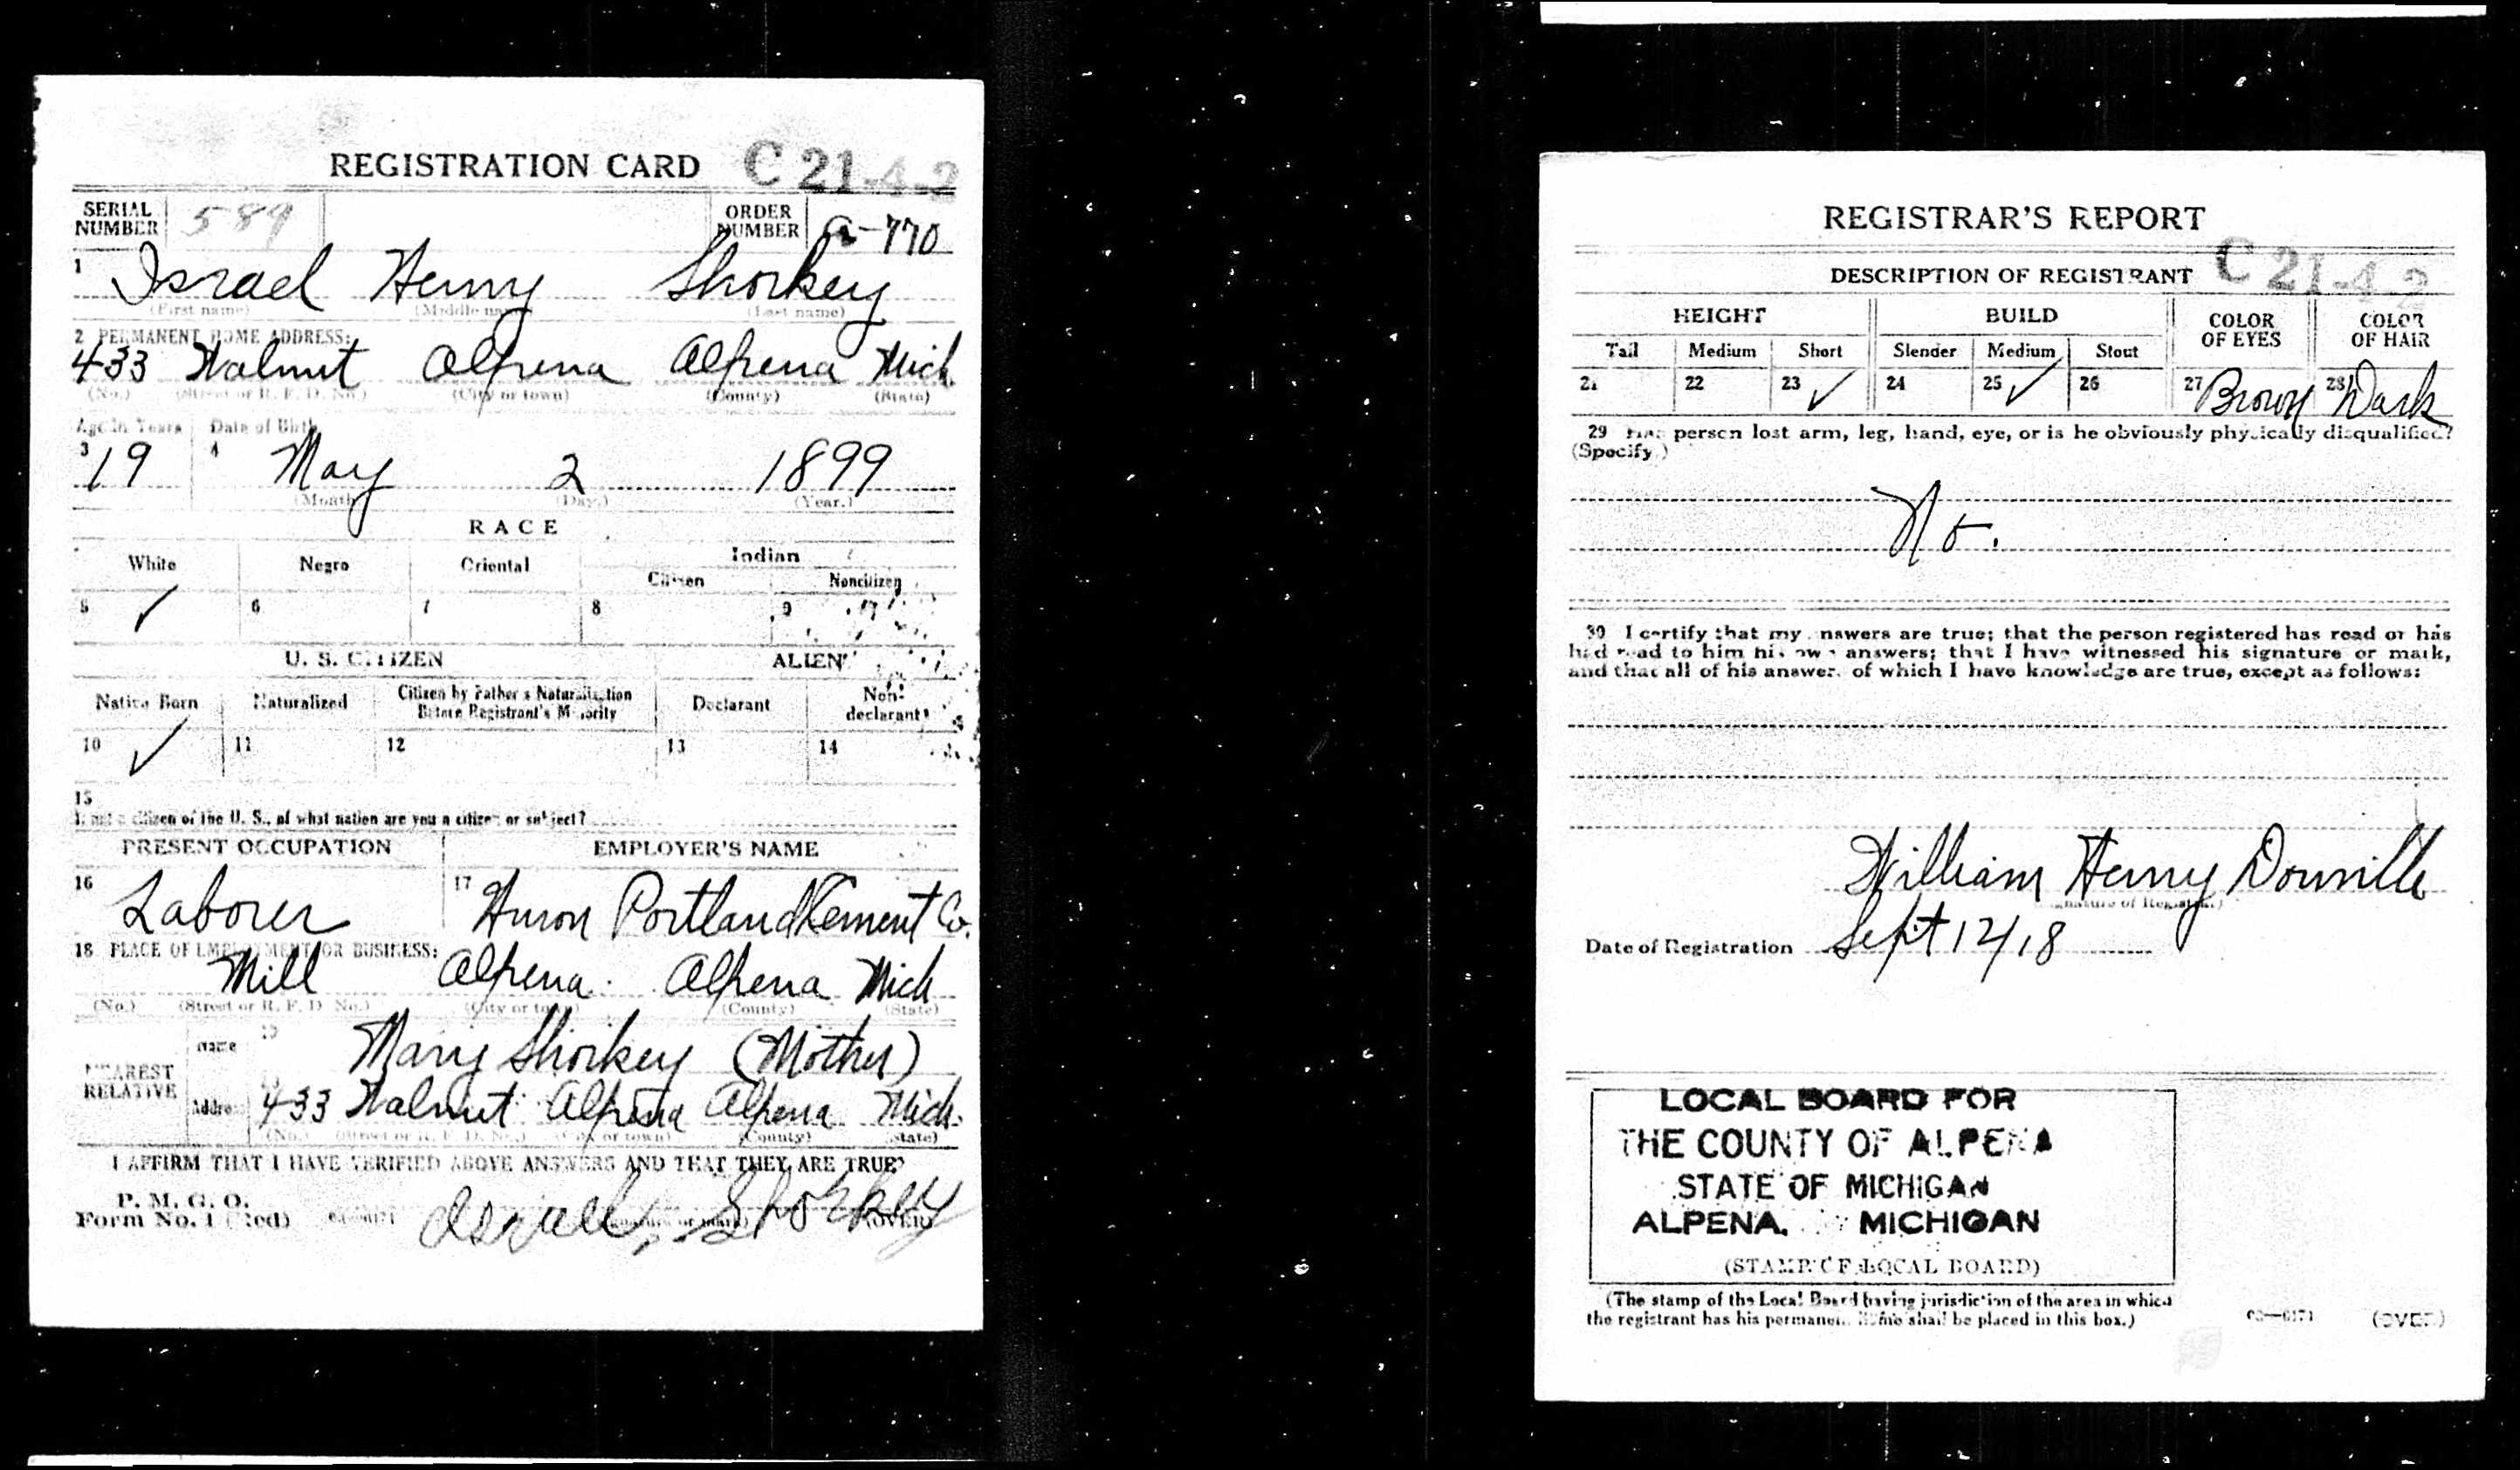 REGISTRATION CARD C 21-4-2
SERIAL NUMBER 589 ORDER NUMBER a-770
1 Israel Henry Shorkey
(First name) (Middle name) (Last name)
2 PERMANENT HOME ADDRESS:
433 Walnut Alpena Alpena Mich
(No.) (Street or R. F. D. No.) (City or town) (County) (State)
Age in Years Date of Birth
3 19 4 May 2 1899
(Month) (Day.) (Year.)
RACE
White Negro Oriental Indian
Citizen Noncitizen
5 ✓ 6 7 8 9
U. S. CITIZEN ALIEN
Native Born Naturalized Citizen by Father's Naturalization Before Registrant's Majority Declarant Non-declarant
10 ✓ 11 12 13 14
15
If not a citizen of the U. S., of what nation are you a citizen or subject?
PRESENT OCCUPATION EMPLOYER'S NAME
16 Laborer 17 Huron Portland Cement Co.
18 PLACE OF EMPLOYMENT OR BUSINESS:
Mill Alpena Alpena Mich
(No.) (Street or R. F. D. No.) (City or town) (County) (State)
NEAREST RELATIVE Name 19 Mary Shorkey (Mother)
Address 433 Walnut Alpena Alpena Mich.
(No.) (Street or R. F. D. No.) (City or town) (County) (State)
I AFFIRM THAT I HAVE VERIFIED ABOVE ANSWERS AND THAT THEY ARE TRUE
P. M. G. O.
Form No. 1 (Red) Shorkey (OVER)
REGISTRAR'S REPORT
C 21-4-2
DESCRIPTION OF REGISTRANT
HEIGHT BUILD COLOR OF EYES COLOR OF HAIR
Tall Medium Short Slender Medium Stout
21 22 23 ✓ 24 25 ✓ 26 27 Brown 28 Dark
29 Has person lost arm, leg, hand, eye, or is he obviously physically disqualified?
(Specify.)
No.
30 I certify that my answers are true; that the person registered has read or has
had read to him his own answers; that I have witnessed his signature or mark,
and that all of his answers of which I have knowledge are true, except as follows:
William Henry Donville
(Signature of Registrar)
Date of Registration Sept 12/18
LOCAL BOARD FOR
THE COUNTY OF ALPENA
STATE OF MICHIGAN
ALPENA, MICHIGAN
(STAMP OF LOCAL BOARD)
(The stamp of the Local Board having jurisdiction of the area in which
the registrant has his permanent home shall be placed in this box.)
03—6171 (OVER)